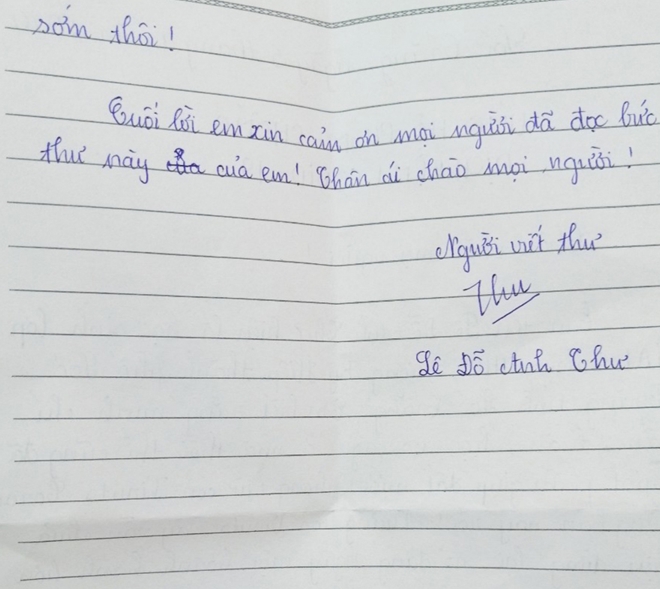 sớm thôi!
Cuối lời em xin cảm ơn mọi người đã đọc bức
thư này của em! Thân ái chào mọi người!
Người viết thư
Thư
Lê Đỗ Anh Thư